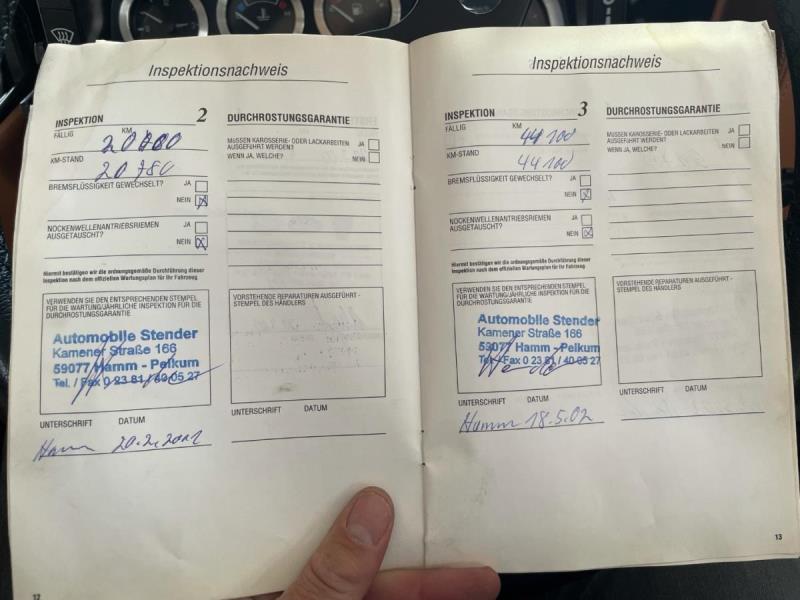 Inspektionsnachweis
INSPEKTION 2
FÄLLIG KM
KM-STAND
20780
BREMSFLÜSSIGKEIT GEWECHSELT? JA
NEIN
NOCKENWELLENANTRIEBSRIEMEN JA
AUSGETAUSCHT?
NEIN
Hiermit bestätigen wir die ordnungsgemäße Durchführung dieser
Inspektion nach dem offiziellen Wartungsplan für Ihr Fahrzeug
VERWENDEN SIE DEN ENTSPRECHENDEN STEMPEL
FÜR DIE WARTUNG/JÄHRLICHE INSPEKTION FÜR DIE
DURCHROSTUNGSGARANTIE
Automobile Stender
Kamener Straße 166
59077 Hamm - Pelkum
Tel. / Fax 0 23 81 / 40 05 27
UNTERSCHRIFT DATUM
Hamm 20.2.2001
DURCHROSTUNGSGARANTIE
MÜSSEN KAROSSERIE- ODER LACKARBEITEN JA
AUSGEFÜHRT WERDEN?
WENN JA, WELCHE? NEIN
VORSTEHENDE REPARATUREN AUSGEFÜHRT -
STEMPEL DES HÄNDLERS
UNTERSCHRIFT DATUM
12
Inspektionsnachweis
INSPEKTION 3
FÄLLIG KM
44100
KM-STAND
44100
BREMSFLÜSSIGKEIT GEWECHSELT? JA
NEIN
NOCKENWELLENANTRIEBSRIEMEN JA
AUSGETAUSCHT?
NEIN
Hiermit bestätigen wir die ordnungsgemäße Durchführung dieser
Inspektion nach dem offiziellen Wartungsplan für Ihr Fahrzeug
VERWENDEN SIE DEN ENTSPRECHENDEN STEMPEL
FÜR DIE WARTUNG/JÄHRLICHE INSPEKTION FÜR DIE
DURCHROSTUNGSGARANTIE
Automobile Stender
Kamener Straße 166
59077 Hamm - Pelkum
Tel. / Fax 0 23 81 / 40 05 27
UNTERSCHRIFT DATUM
Hamm 18.5.02
DURCHROSTUNGSGARANTIE
MÜSSEN KAROSSERIE- ODER LACKARBEITEN JA
AUSGEFÜHRT WERDEN?
WENN JA, WELCHE? NEIN
VORSTEHENDE REPARATUREN AUSGEFÜHRT -
STEMPEL DES HÄNDLERS
UNTERSCHRIFT DATUM
13